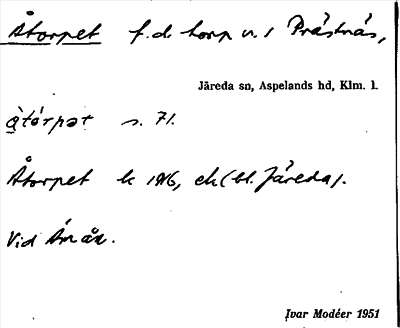 Åtorpet f.d. torp u. 1 Prästnäs,
Järeda sn, Aspelands hd, Klm. l.
s. 71.
Åtorpet k 1916, ek (bl. Järeda).
Vid Ån.
Ivar Modéer 1951